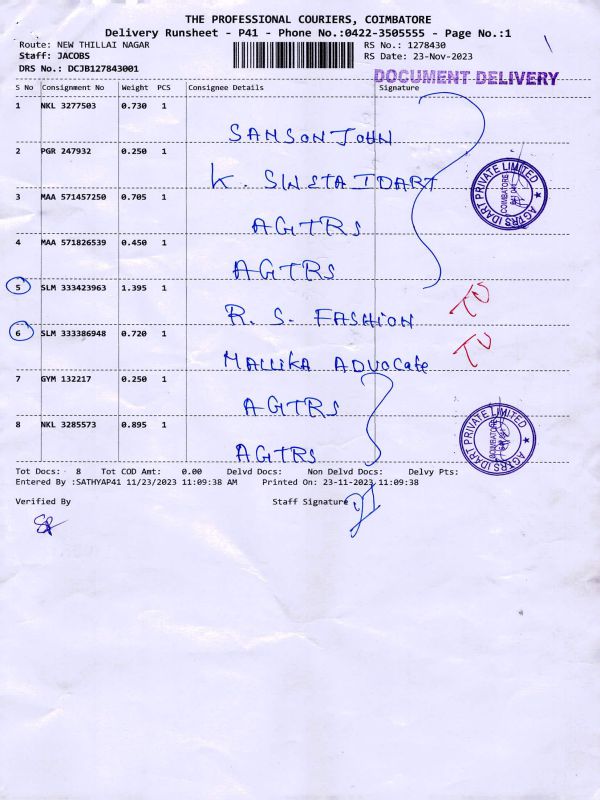 THE PROFESSIONAL COURIERS, COIMBATORE
Delivery Runsheet - P41 - Phone No.:0422-3505555 - Page No.:1
Route: NEW THILLAI NAGAR RS No.: 1278430
Staff: JACOBS RS Date: 23-Nov-2023
DRS No.: DCJB127843001
DOCUMENT DELIVERY
S No Consignment No Weight PCS Consignee Details Signature
1 NKL 3277503 0.730 1
SAMSON JOHN
2 PGR 247932 0.250 1
K. SWETA IDART
3 MAA 571457250 0.705 1
AGTRS
4 MAA 571826539 0.450 1
AGTRS
AGTRS IDART PRIVATE LIMITED ★
COIMBATORE
5 SLM 333423963 1.395 1
R. S. FASHION
6 SLM 333386948 0.720 1
MALLIKA ADVOCATE
7 GYM 132217 0.250 1
AGTRS
8 NKL 3285573 0.895 1
AGTRS
AGTRS IDART PRIVATE LIMITED ★
COIMBATORE
Tot Docs: 8 Tot COD Amt: 0.00 Delvd Docs: Non Delvd Docs: Delvy Pts:
Entered By :SATHYAP41 11/23/2023 11:09:38 AM Printed On: 23-11-2023 11:09:38
Verified By Staff Signature